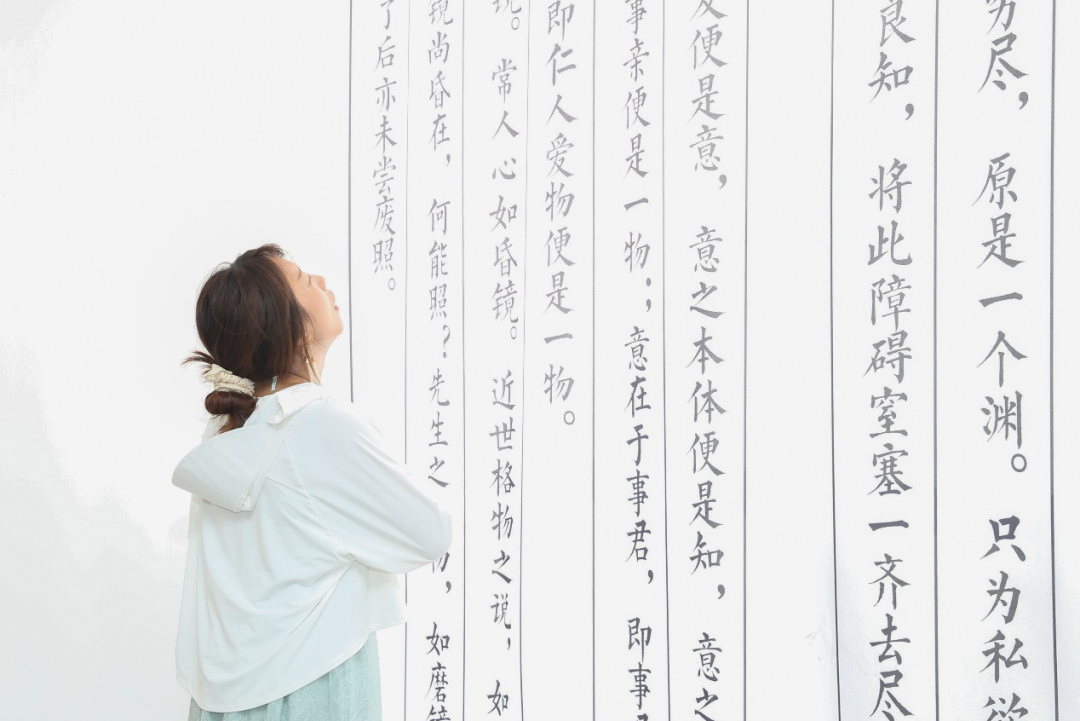 穷尽， 原是一个渊。 只为私欲
良知， 将此障碍窒塞一齐去尽
发便是意， 意之本体便是知， 意之
事亲便是一物；意在于事君， 即事
即仁人爱物便是一物。
镜。 常人心如昏镜。 近世格物之说， 如
镜尚昏在， 何能照？先生之物， 如磨镜
了后亦未尝废照。